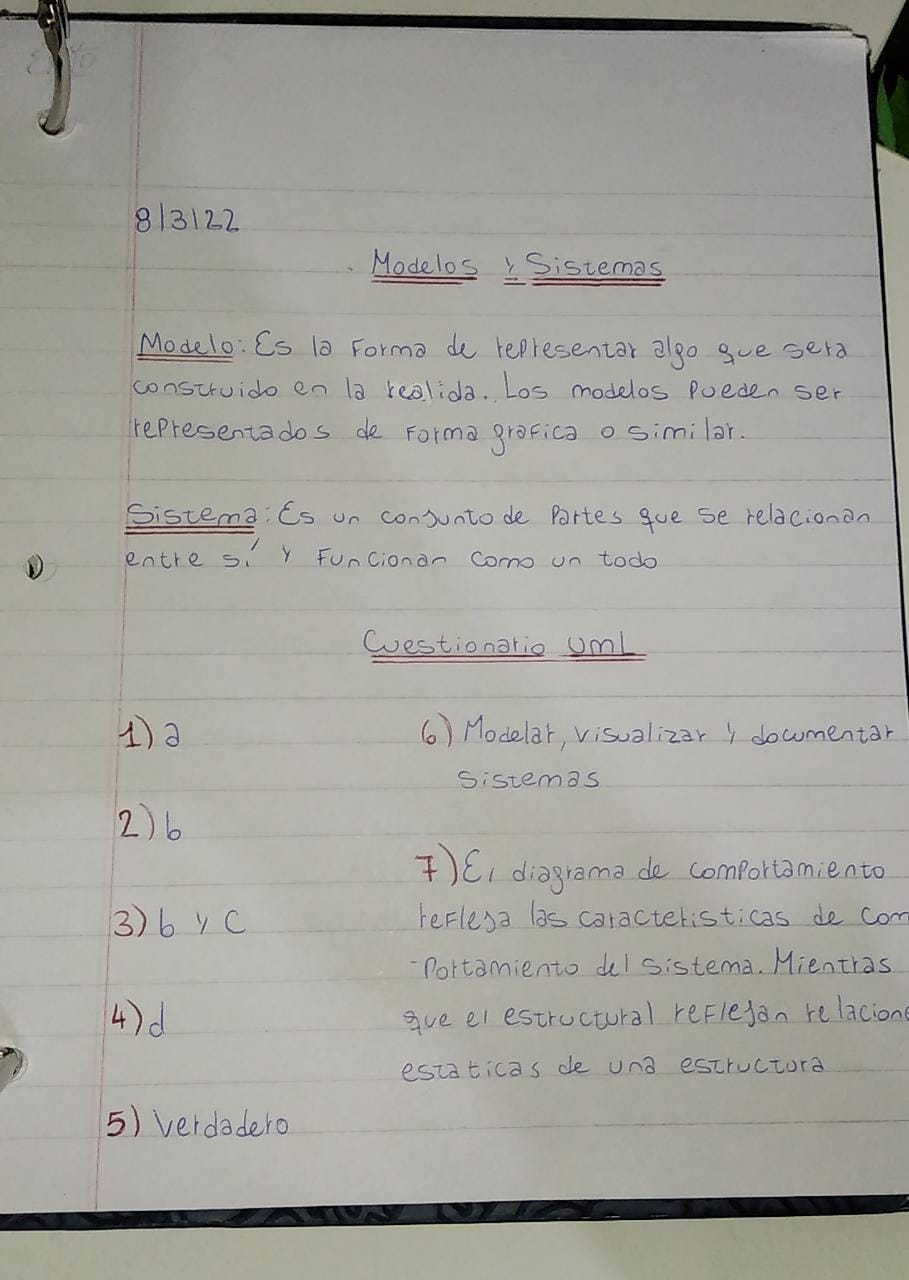 8/3/22
Modelos y Sistemas
Modelo: Es la Forma de representar algo que sera
construido en la realida. Los modelos pueden ser
representados de Forma grafica o similar.
Sistema: Es un conjunto de Partes que se relacionan
entre sí y Funcionan como un todo
Cuestionario UML
1) a
2) b
3) b y C
4) d
5) Verdadero
6) Modelar, visualizar y documentar
sistemas
7) El diagrama de comportamiento
refleja las caracteristicas de com
-portamiento del sistema. Mientras
que el estructural reflejan relacione
estaticas de una estructura